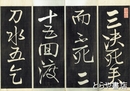 三決死矣
而不死二
十五回渡
刀水五乞